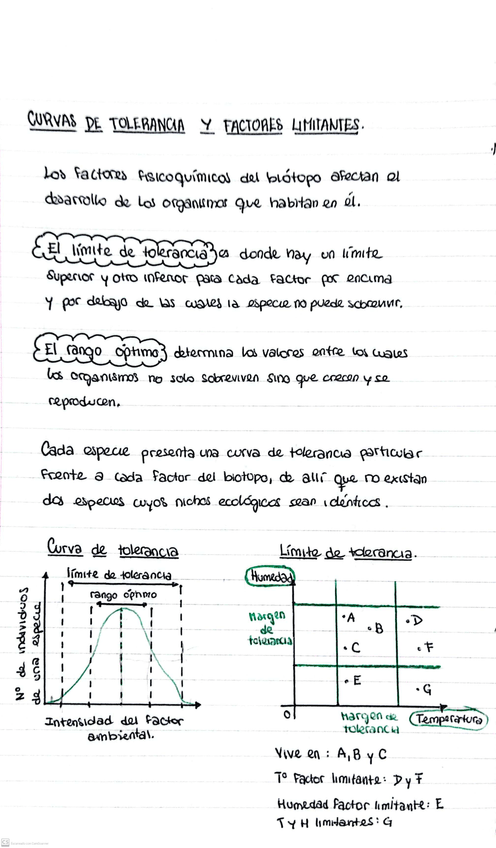 CURVAS DE TOLERANCIA Y FACTORES LIMITANTES.
Los factores fisicoquímicos del biótopo afectan el
desarrollo de los organismos que habitan en él.
El límite de tolerancia es donde hay un límite
superior y otro inferior para cada factor por encima
y por debajo de las cuales la especie no puede sobrevivir.
El rango óptimo determina los valores entre los cuales
los organismos no solo sobreviven sino que crecen y se
reproducen.
Cada especie presenta una curva de tolerancia particular
frente a cada factor del biotopo, de allí que no existan
dos especies cuyos nichos ecológicos sean idénticos.
Curva de tolerancia
límite de tolerancia
rango óptimo
Nº de individuos
de una especie
Intensidad del factor
ambiental.
Límite de tolerancia.
Humedad
Margen
de
tolerancia
A
B
C
D
F
E
G
0
Margen de
tolerancia
Temperatura
Vive en: A, B y C
Tº Factor limitante: D y F
Humedad factor limitante: E
T y H limitantes: G